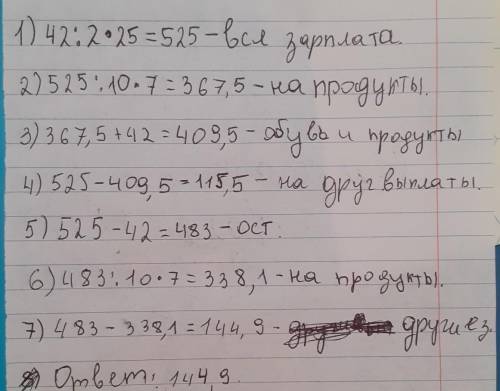 1) 42 : 2 • 25 = 525 – вся зарплата.
2) 525 : 10 • 7 = 367,5 – на продукты.
3) 367,5 + 42 = 409,5 – обувь и продукты
4) 525 – 409,5 = 115,5 – на друг выплаты.
5) 525 – 42 = 483 – ост.
6) 483 : 10 • 7 = 338,1 – на продукты.
7) 483 – 338,1 = 144,9 – другие з.
Ответ: 144,9.